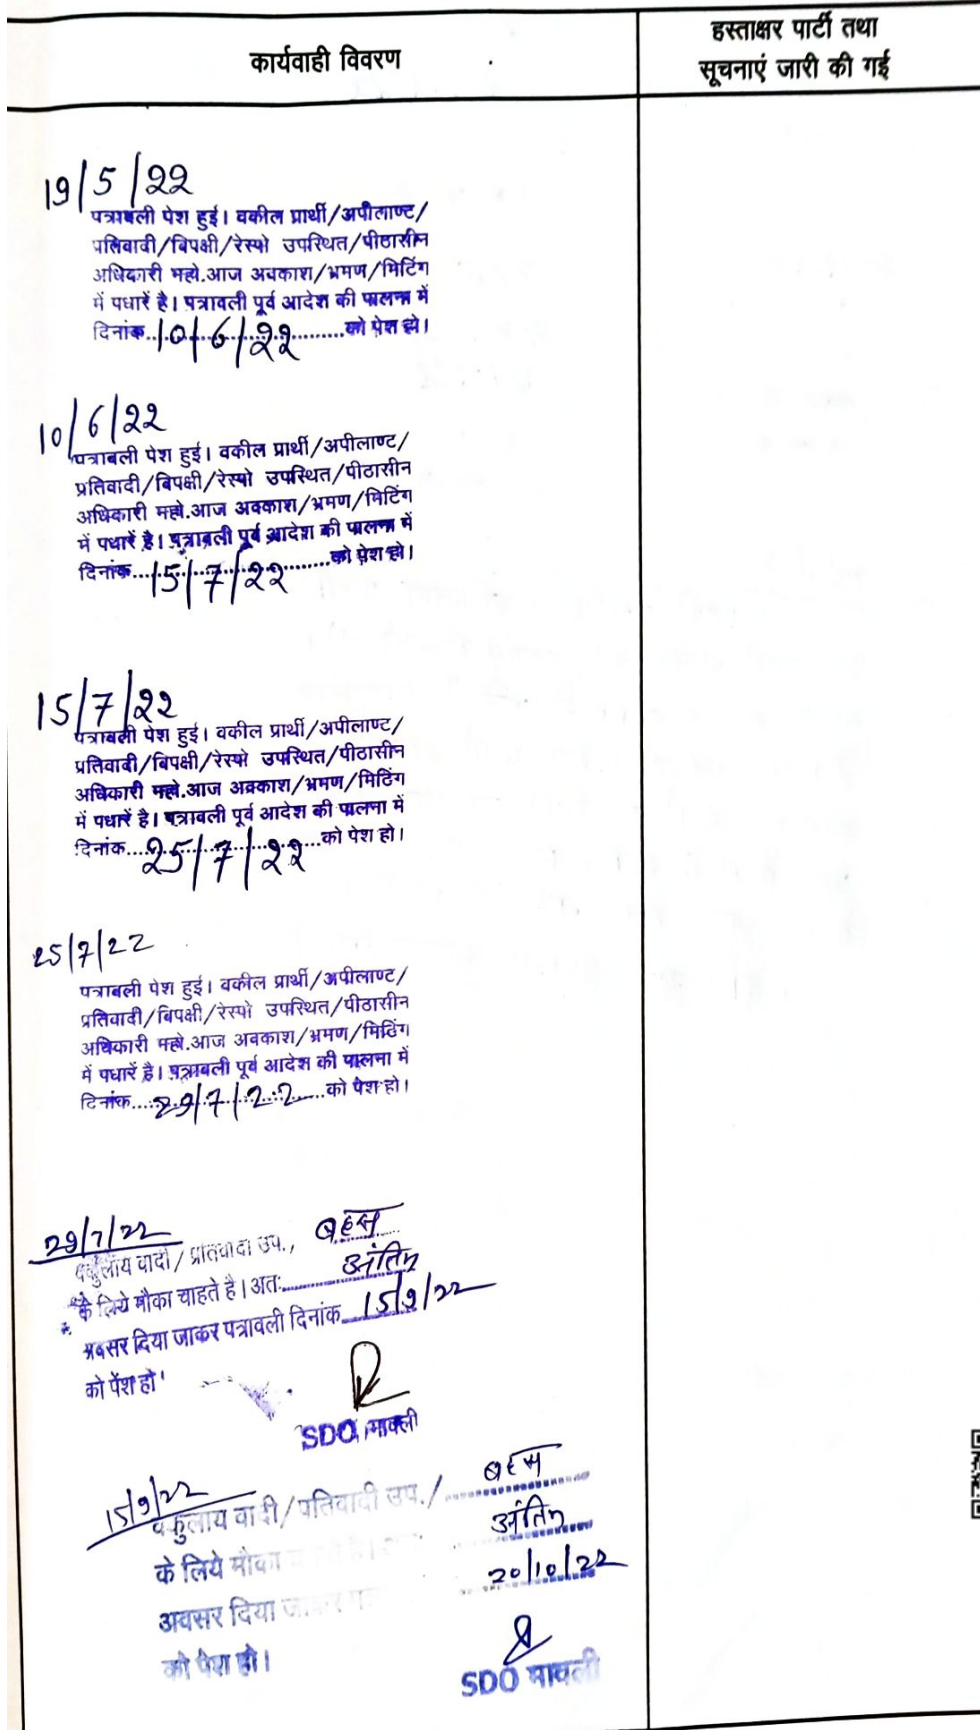 कार्यवाही विवरण
हस्ताक्षर पार्टी तथा
सूचनाएं जारी की गई
19/5/22
पत्राबली पेश हुई। वकील प्रार्थी/अपीलाण्ट/
प्रतिवादी/बिपक्षी/रेस्पो उपस्थित/पीठासीन
अधिकारी महो.आज अवकाश/भ्रमण/मिटिंग
में पधारें है। पत्रावली पूर्व आदेश की पालना में
दिनांक..10/6/22..को पेश हो।
10/6/22
पत्राबली पेश हुई। वकील प्रार्थी/अपीलाण्ट/
प्रतिवादी/बिपक्षी/रेस्पो उपस्थित/पीठासीन
अधिकारी महो.आज अवकाश/भ्रमण/मिटिंग
में पधारें है। पत्रावली पूर्व आदेश की पालना में
दिनांक...15/7/22...को पेश हो।
15/7/22
पत्राबली पेश हुई। वकील प्रार्थी/अपीलाण्ट/
प्रतिवादी/बिपक्षी/रेस्पो उपस्थित/पीठासीन
अधिकारी महो.आज अवकाश/भ्रमण/मिटिंग
में पधारें है। पत्रावली पूर्व आदेश की पालना में
दिनांक...25/7/22...को पेश हो।
25/7/22
पत्राबली पेश हुई। वकील प्रार्थी/अपीलाण्ट/
प्रतिवादी/बिपक्षी/रेस्पो उपस्थित/पीठासीन
अधिकारी महो.आज अवकाश/भ्रमण/मिटिंग
में पधारें है। पत्रावली पूर्व आदेश की पालना में
दिनांक...29/7/22...को पेश हो।
29/7/22
वकुलाय वादी/प्रतिवादी उप., बहस
के लिये मौका चाहते है। अतः अंतिम
अवसर दिया जाकर पत्रावली दिनांक 15/9/22
को पेंश हो
SDO, मावली
15/9/22
वकुलाय वादी/पतिवादी उप./ बहस
के लिये मौका अंतिम
अवसर दिया 20/10/22
को पेश हो।
SDO मावली